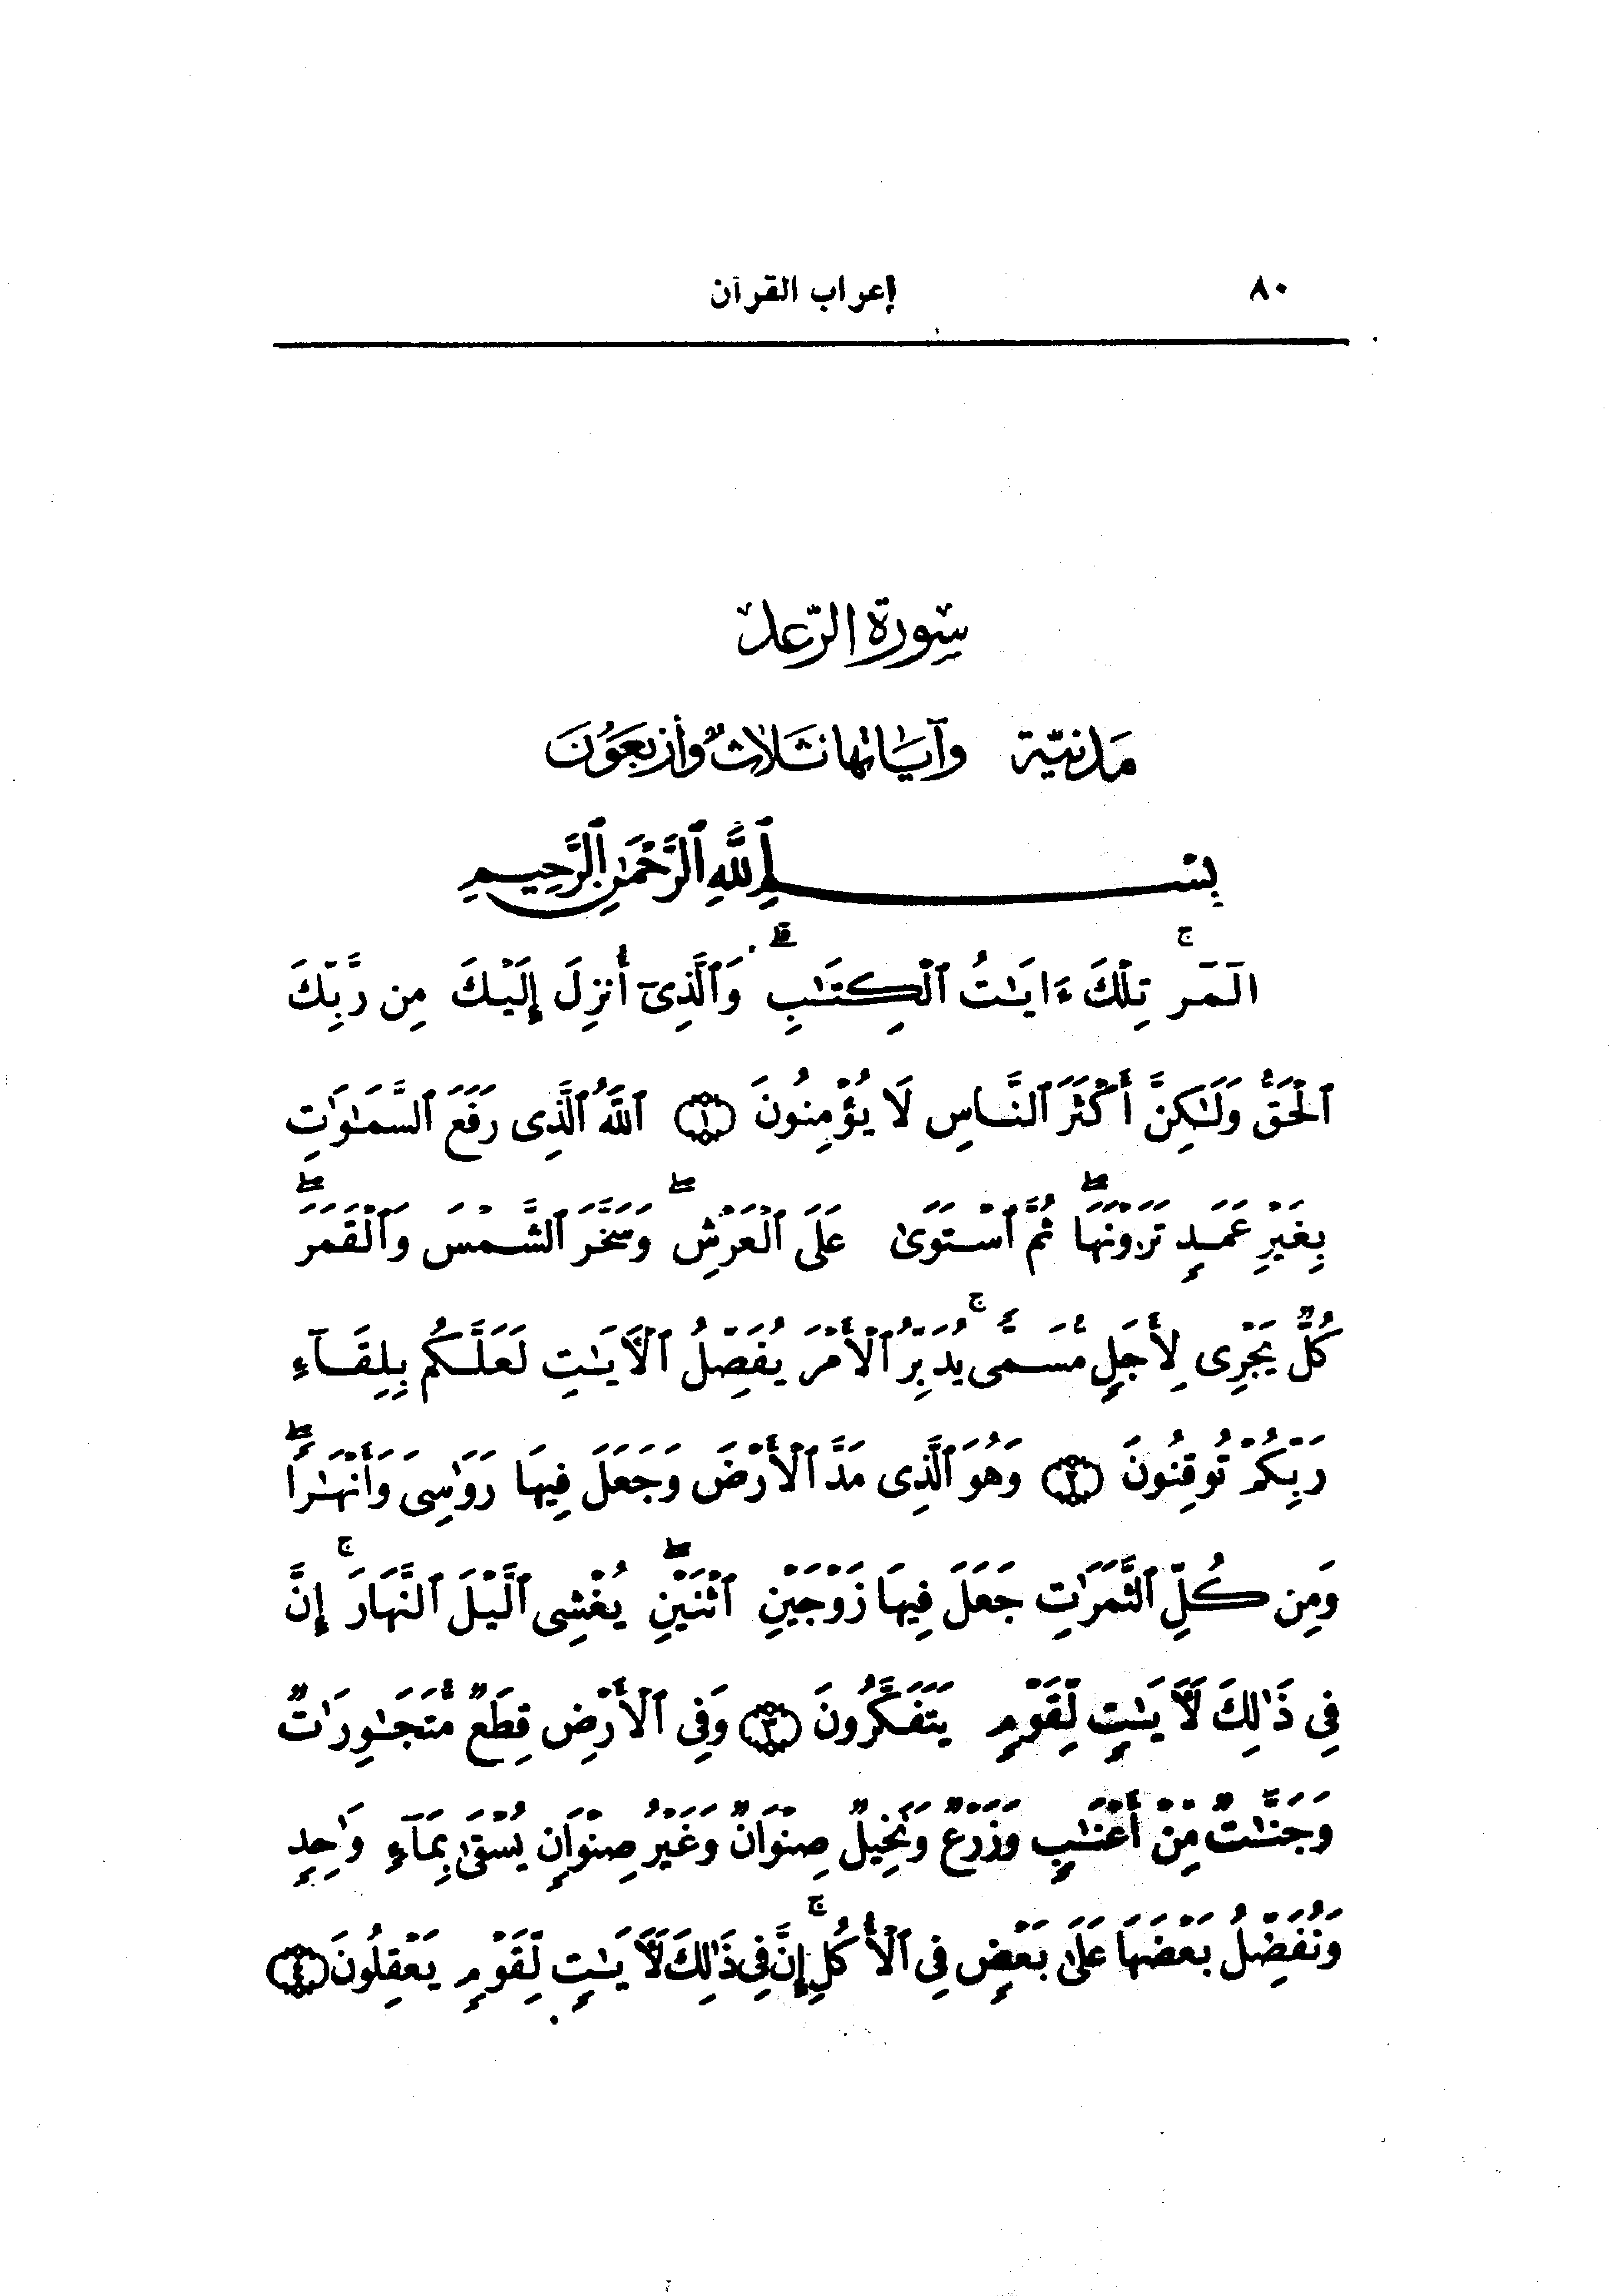 ٨٠ إعراب القرآن
سورة الرّعد
مَدَنيّة وآيَاتها ثَلاثٌ وأَرْبعَوُنَ
بِسْمِ ٱللَّهِ ٱلرَّحْمَٰنِ ٱلرَّحِيمِ
الٓمٓر ۚ تِلْكَ ءَايَٰتُ ٱلْكِتَٰبِ ۗ وَٱلَّذِىٓ أُنزِلَ إِلَيْكَ مِن رَّبِّكَ
ٱلْحَقُّ وَلَٰكِنَّ أَكْثَرَ ٱلنَّاسِ لَا يُؤْمِنُونَ ﴿١﴾ ٱللَّهُ ٱلَّذِى رَفَعَ ٱلسَّمَٰوَٰتِ
بِغَيْرِ عَمَدٍ تَرَوْنَهَا ۖ ثُمَّ ٱسْتَوَىٰ عَلَى ٱلْعَرْشِ ۖ وَسَخَّرَ ٱلشَّمْسَ وَٱلْقَمَرَ ۖ
كُلٌّ يَجْرِى لِأَجَلٍ مُّسَمًّى ۚ يُدَبِّرُ ٱلْأَمْرَ يُفَصِّلُ ٱلْأٓيَٰتِ لَعَلَّكُم بِلِقَآءِ
رَبِّكُمْ تُوقِنُونَ ﴿٢﴾ وَهُوَ ٱلَّذِى مَدَّ ٱلْأَرْضَ وَجَعَلَ فِيهَا رَوَٰسِىَ وَأَنْهَٰرًا ۖ
وَمِن كُلِّ ٱلثَّمَرَٰتِ جَعَلَ فِيهَا زَوْجَيْنِ ٱثْنَيْنِ ۖ يُغْشِى ٱلَّيْلَ ٱلنَّهَارَ ۚ إِنَّ
فِى ذَٰلِكَ لَأٓيَٰتٍ لِّقَوْمٍ يَتَفَكَّرُونَ ﴿٣﴾ وَفِى ٱلْأَرْضِ قِطَعٌ مُّتَجَٰوِرَٰتٌ
وَجَنَّٰتٌ مِّنْ أَعْنَٰبٍ وَزَرْعٌ وَنَخِيلٌ صِنْوَانٌ وَغَيْرُ صِنْوَانٍ يُسْقَىٰ بِمَآءٍ وَٰحِدٍ
وَنُفَضِّلُ بَعْضَهَا عَلَىٰ بَعْضٍ فِى ٱلْأُكُلِ ۚ إِنَّ فِى ذَٰلِكَ لَأٓيَٰتٍ لِّقَوْمٍ يَعْقِلُونَ ﴿٤﴾